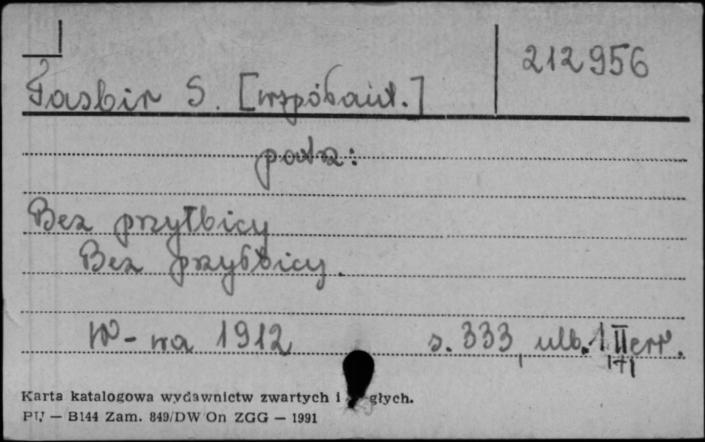 212956
S. [współaut.]
patrz:
Bez przyłbicy
Bez przyłbicy.
W-wa 1912 s. 333, ulb. 1 II err.
Karta katalogowa wydawnictw zwartych i głych.
PU — B144 Zam. 849/DW On ZGG — 1991